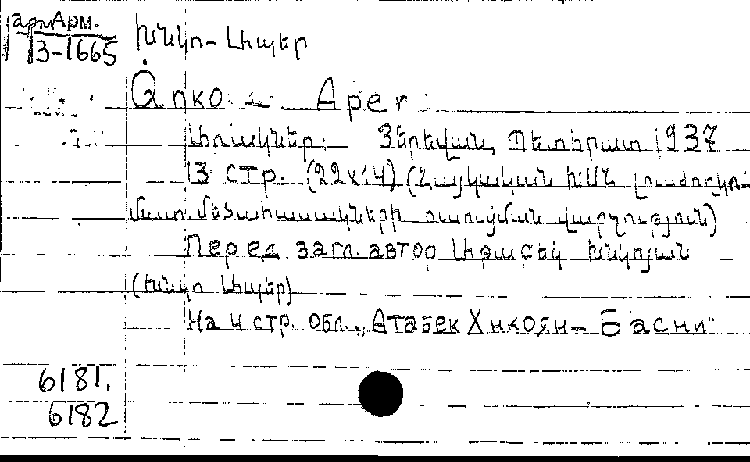 арм Арм.
3-1665
Խնկո-Ապեր
Ọnko - Aper
Առակներ: Յերեվան, Պետհրատ, 1937
13 стр. (22x14) (Հայկական ԽՍՀ լուսժողկո-
մատ. վարչություն)
Перед загл. автор Աթաբեկ Խնկոյան
(Խնկո Ապեր)
На 4 стр. обл., Атабек Хнкоян - Басни"
6181,
6182